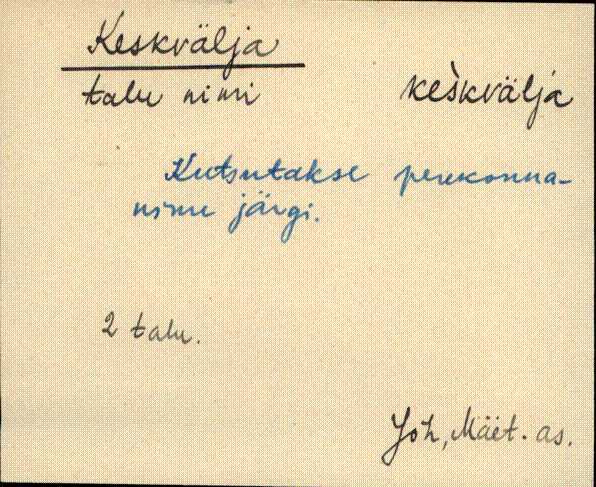 Keskvälja
talu nimi keskvälja
Kutsutakse perekonna-
nime järgi.
2 talu.
Jõh, Mäet. as.